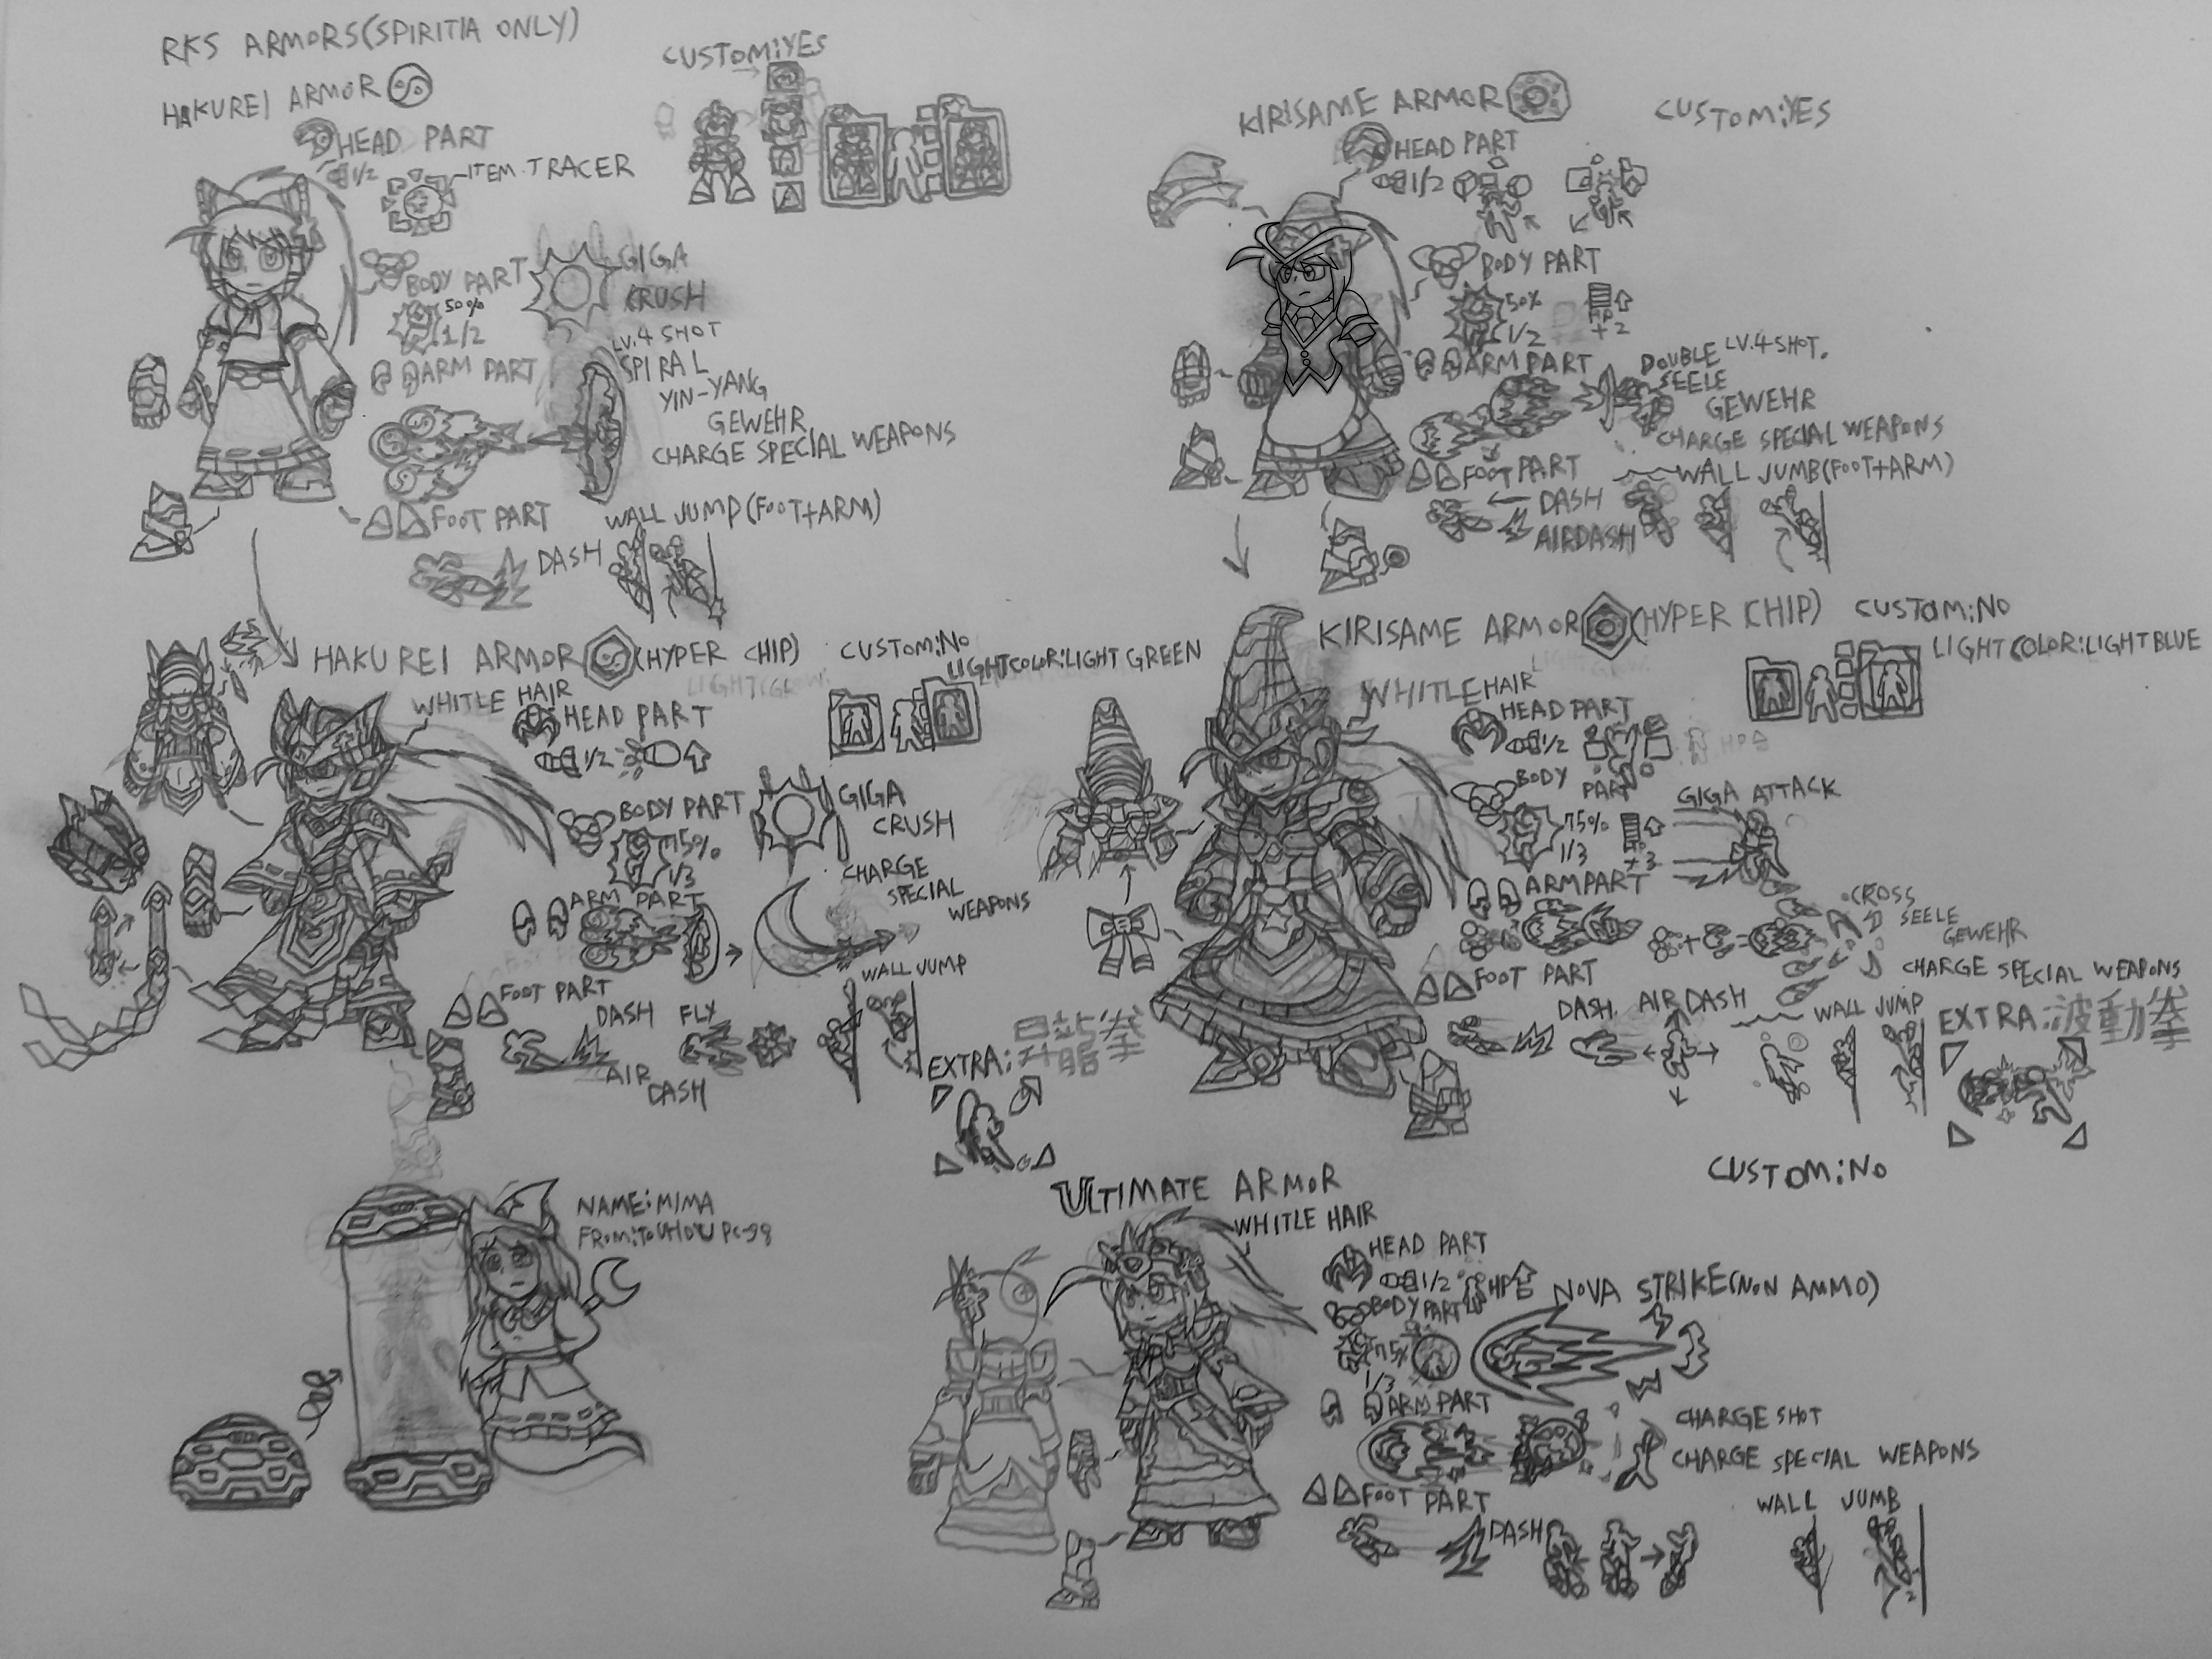 RKS ARMORS(SPIRITIA ONLY)
HAKUREI ARMOR
CUSTOM:YES
HEAD PART
1/2
ITEM TRACER
BODY PART
50%
1/2
GIGA
CRUSH
ARM PART
LV.4 SHOT
SPIRAL
YIN-YANG
GEWEHR
CHARGE SPECIAL WEAPONS
FOOT PART
DASH
WALL JUMP(FOOT+ARM)
KIRISAME ARMOR
CUSTOM:YES
HEAD PART
1/2
BODY PART
50%
1/2
HP
+2
ARM PART
DOUBLE LV.4 SHOT.
SEELE
GEWEHR
CHARGE SPECIAL WEAPONS
FOOT PART
DASH
AIRDASH
WALL JUMB(FOOT+ARM)
HAKUREI ARMOR (HYPER CHIP)
CUSTOM:NO
LIGHTCOLOR:LIGHT GREEN
WHITLE HAIR
HEAD PART
1/2
BODY PART
75%
1/3
GIGA
CRUSH
ARM PART
CHARGE
SPECIAL
WEAPONS
FOOT PART
DASH
AIR
DASH
FLY
WALL JUMP
EXTRA:昇龍拳
KIRISAME ARMOR (HYPER CHIP)
CUSTOM:NO
LIGHT COLOR:LIGHT BLUE
WHITLE HAIR
HEAD PART
1/2
BODY
PART
75%
1/3
+3
GIGA ATTACK
ARM PART
CROSS
SEELE
GEWEHR
CHARGE SPECIAL WEAPONS
FOOT PART
DASH
AIR DASH
WALL JUMP
EXTRA:波動拳
NAME:MIMA
FROM:TOUHOU PC-98
ULTIMATE ARMOR
CUSTOM:NO
WHITLE HAIR
HEAD PART
1/2
HP
BODY PART
75%
1/3
NOVA STRIKE(NON AMMO)
ARM PART
CHARGE SHOT
CHARGE SPECIAL WEAPONS
FOOT PART
DASH
WALL JUMB